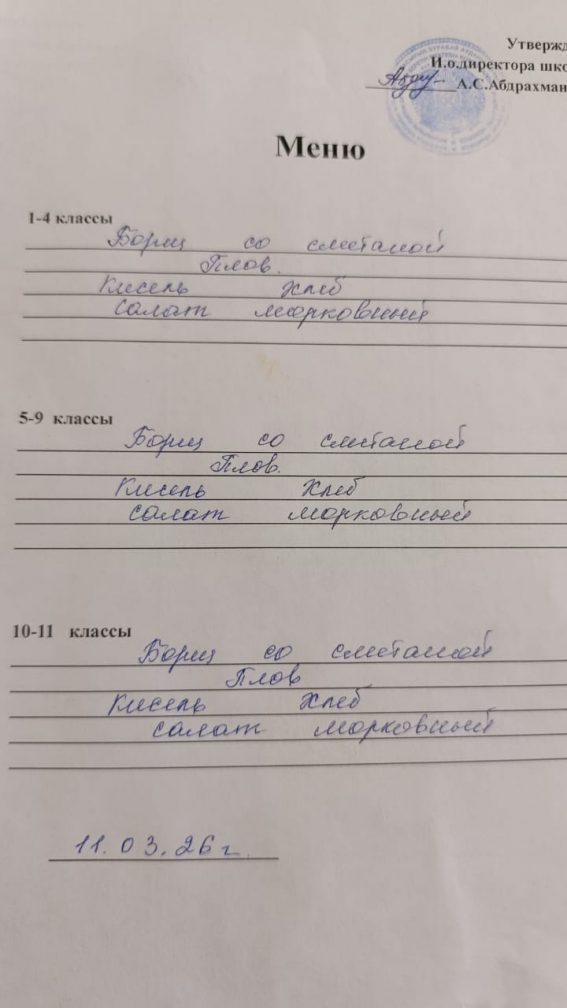 Утвержд
И.о.директора шко
А.С.Абдрахман
Меню
1-4 классы
Борщ со сметаной
Плов.
Кисель Хлеб
Салат морковный
5-9 классы
Борщ со сметаной
Плов.
Кисель Хлеб
Салат морковный
10-11 классы
Борщ со сметаной
Плов
Кисель Хлеб
Салат морковный
11.03.26 г.